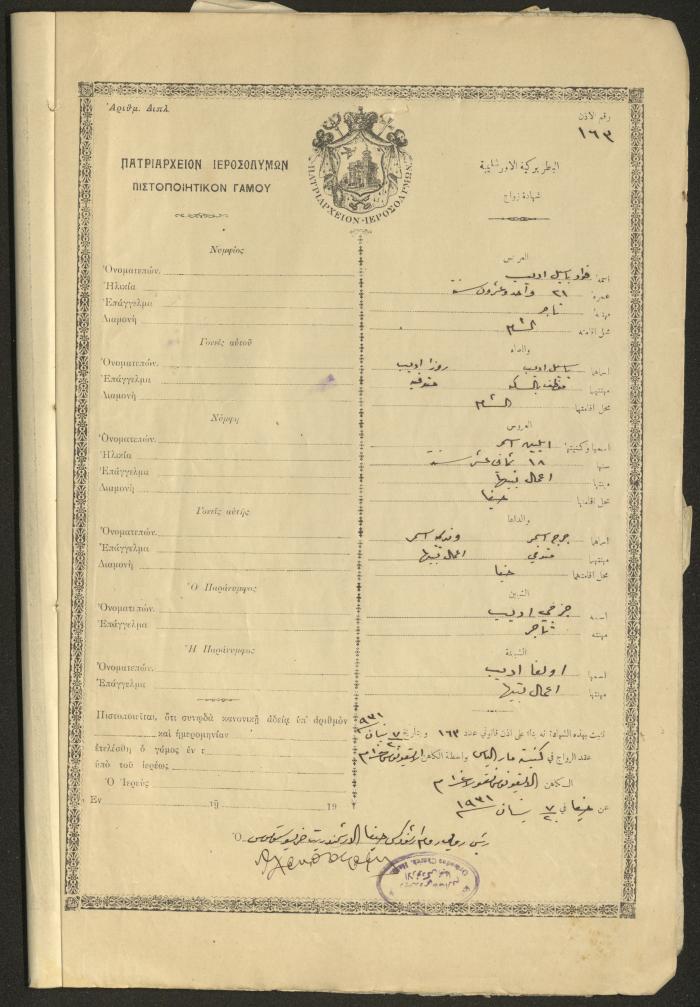 Ἀριθμ. Διπλ.
رقم الاذن
١٦٣
ΠΑΤΡΙΑΡΧΕΙΟΝ ΙΕΡΟΣΟΛΥΜΩΝ
ΠΙΣΤΟΠΟΙΗΤΙΚΟΝ ΓΑΜΟΥ
ΠΑΤΡΙΑΡΧΕΙΟΝ-ΙΕΡΟΣΟΛΥΜΩΝ
البطريركية الاورشليمية
شهادة زواج
Νυμφίος
Ὀνοματεπών.
Ἡλικία
Ἐπάγγελμα
Διαμονὴ
Γονεῖς αὐτοῦ
Ὀνοματεπών.
Ἐπάγγελμα
Διαμονὴ
Νύμφη
Ὀνοματεπών.
Ἡλικία
Ἐπάγγελμα
Διαμονὴ
Γονεῖς αὐτῆς
Ὀνοματεπών.
Ἐπάγγελμα
Διαμονὴ
Ὁ Παράνυμφος
Ὀνοματεπών.
Ἐπάγγελμα
Ἡ Παράνυμφος
Ὀνοματεπών.
Ἐπάγγελμα
Πιστοποιεῖται, ὅτι συνῳδὰ κανονικῇ ἀδείᾳ ὑπ' ἀριθμὸν
καὶ ἡμερομηνίαν
ἐτελέσθη ὁ γάμος ἐν τ
ὑπὸ τοῦ ἱερέως
Ὁ Ἱερεὺς
Ἐν τῇ 19
العريس
اسمه باسيل اديب
عمره ٢١ واحد وعشرون سنة
مهنته تاجر
محل اقامته الشام
والداه
اسماهما باسيل اديب روزا اديب
مهنتهما
محل اقامتهما الشام
العروس
اسمها وكنيتها ايلين اسمر
سنها ١٨ ثماني عشر سنة
مهنتها اعمال بيتها
محل اقامتها حيفا
والداها
اسماهما جرجس اسمر اسمر
مهنتهما اعمال بيتها
محل اقامتهما حيفا
الشبين
اسمه اديب
مهنته تاجر
الشبينة
اسمها اولغا اديب
مهنتها اعمال بيتها
بهذه الشهادة انه بناء على اذن قانوني عدد ١٦٣ وبتاريخ ٧ نيسان ٩٣١
عقد الزواج في كنيسة مار الياس بواسطة الكاهن
الكاهن
عن حيفا في ٧ نيسان ١٩٣١
Ὁ
رئيس روحي روم ارثوذكس حيفا الارشمندريت